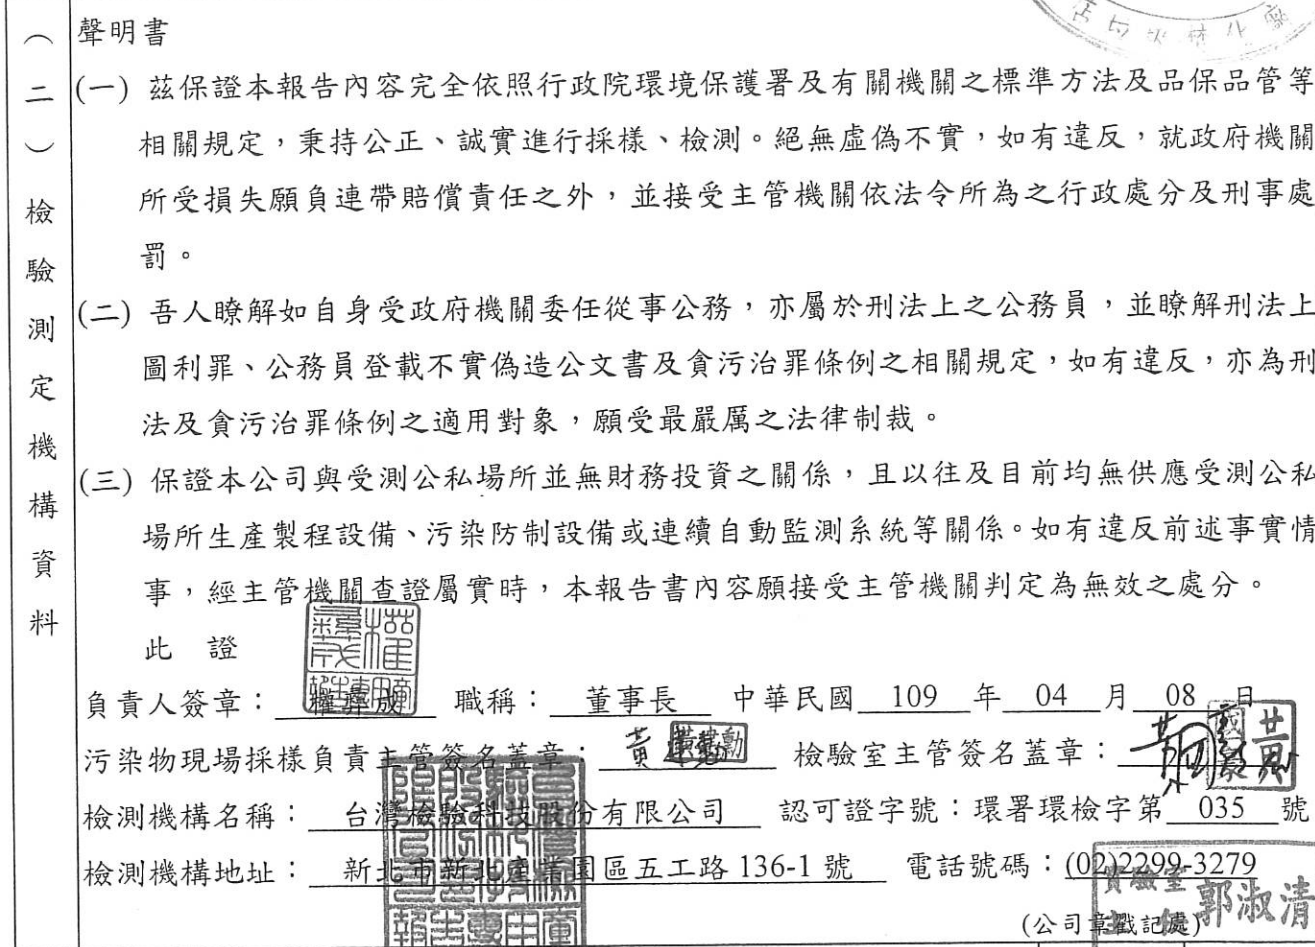 （二）檢驗測定機構資料
聲明書
(一) 茲保證本報告內容完全依照行政院環境保護署及有關機關之標準方法及品保品管等
相關規定，秉持公正、誠實進行採樣、檢測。絕無虛偽不實，如有違反，就政府機關
所受損失願負連帶賠償責任之外，並接受主管機關依法令所為之行政處分及刑事處
罰。
(二) 吾人瞭解如自身受政府機關委任從事公務，亦屬於刑法上之公務員，並瞭解刑法上
圖利罪、公務員登載不實偽造公文書及貪污治罪條例之相關規定，如有違反，亦為刑
法及貪污治罪條例之適用對象，願受最嚴厲之法律制裁。
(三) 保證本公司與受測公私場所並無財務投資之關係，且以往及目前均無供應受測公私
場所生產製程設備、污染防制設備或連續自動監測系統等關係。如有違反前述事實情
事，經主管機關查證屬實時，本報告書內容願接受主管機關判定為無效之處分。
此 證
負責人簽章： 權彝成 職稱： 董事長 中華民國 109 年 04 月 08 日
污染物現場採樣負責主管簽名蓋章： 黃 檢驗室主管簽名蓋章：
檢測機構名稱： 台灣檢驗科技股份有限公司 認可證字號：環署環檢字第 035 號
檢測機構地址： 新北市新北產業園區五工路 136-1 號 電話號碼：(02)2299-3279
(公司章戳記處)
實驗室
主任 郭淑清